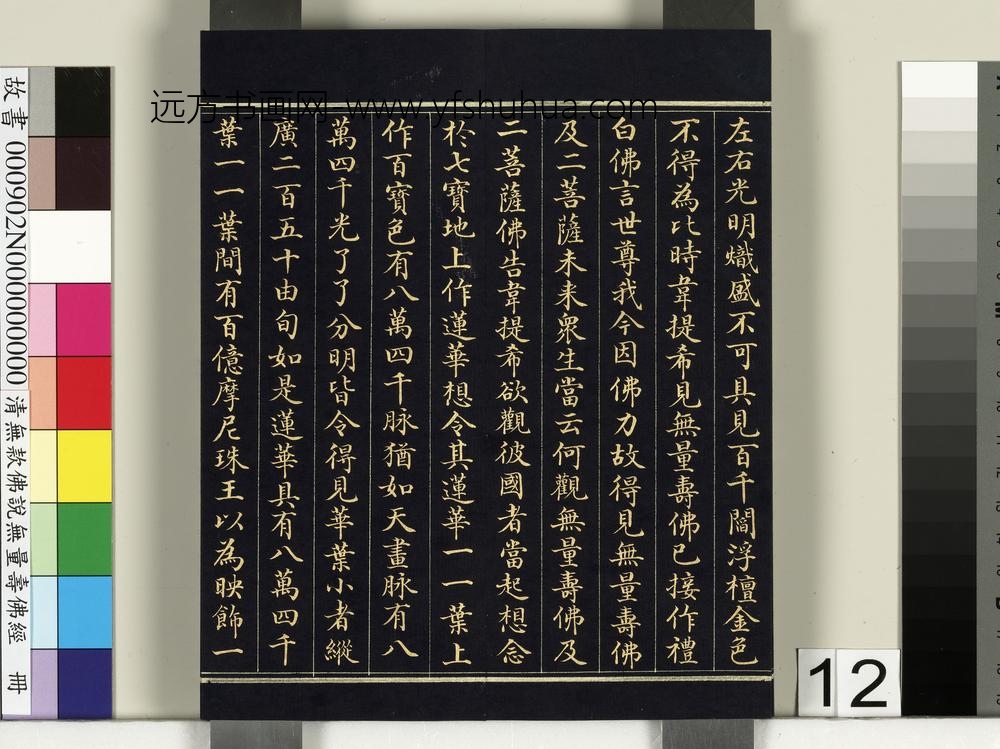 远方书画网 www.yfshuhua.com
左右光明熾盛不可具見百千閻浮檀金色
不得為比時韋提希見無量壽佛已接作禮
白佛言世尊我今因佛力故得見無量壽佛
及二菩薩未来眾生當云何觀無量壽佛及
二菩薩佛告韋提希欲觀彼國者當起想念
於七寶地上作蓮華想令其蓮華一一葉上
作百寶色有八萬四千脉猶如天畫脉有八
萬四千光了了分明皆令得見華葉小者縱
廣二百五十由旬如是蓮華具有八萬四千
葉一一葉間有百億摩尼珠王以為映飾一
故書 000902N000000000 清無款佛說無量壽佛經 冊
12